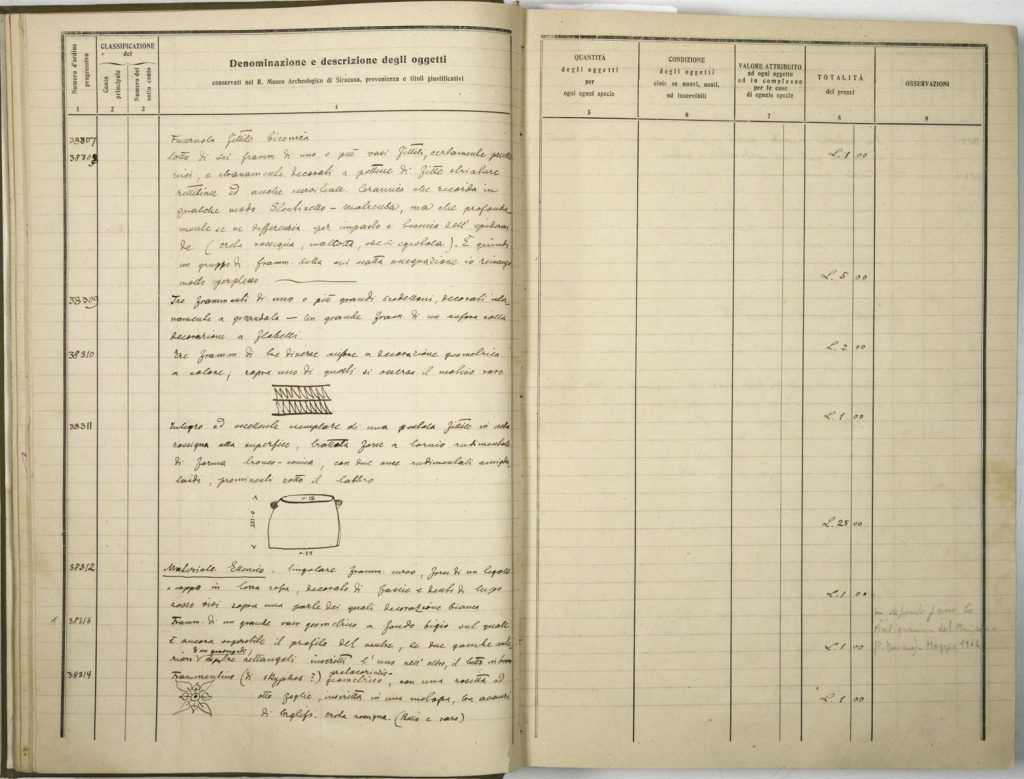 Numero d'ordine progressivo
CLASSIFICAZIONE
del
Conto principale
Numero del sotto conto
Denominazione e descrizione degli oggetti
conservati nel R. Museo Archeologico di Siracusa, provenienza e titoli giustificativi
1 2 3 4
38307 Fuseruola fittile biconica
38308 Lotto di sei framm. di uno o più vasi fittili, certamente
e stranamente decorati a pettine di fitte striature
rettilinee ed anche curvilinee. Ceramica che ricorda in
qualche modo Stentinello - Matrensa, ma che profonda-
mente se ne differenzia per impasto e tecnica dell'
(creta rossigna, malcotta, ). È quindi
un gruppo di framm. sulla cui esatta assegnazione io rimango
molto perplesso
38309 Tre frammenti di uno o più grandi scodelloni, decorati
a girandola - Un grande framm. di un anfora colla
decorazione a flabelli.
38310 Tre framm. di tre diverse anfore a decorazione geometrica
a colore; sopra uno di quali si osserva il motivo raro
38311 Integro ed eccellente esemplare di una pentola fittile in creta
rossigna alla superficie, trattata forse a tornio rudimentale
di forma tronco-conica, con due anse rudimentali
prominenti sotto il labbro
0.18
0.29
38312 Materiale Esenico. Singolare framm. curvo, forse di un
o coppa in terra rossa, decorato di fascie e denti di lupo
rosso vivi sopra una parte dei quali decorazione bianca
1 38313 Framm. di un grande vaso geometrico a fondo bigio sul quale
è ancora superstite il profilo del ventre, le due gambe
d'un quadrupede;
rettangoli inscritti l'uno nell'altro, il tutto in
protocorinzio-
38314 Frammentino (di skyphos?) geometrico, con una rosetta ad
otto foglie, inscritta in una metopa, con avanzi
di creta rossigna. (Pezzo e raro)
QUANTITÀ
degli oggetti
per
ogni eguni specie
CONDIZIONE
degli oggetti
cioè: se nuovi, usati,
od inservibili
VALORE ATTRIBUITO
ad ogni oggetto
ed in complesso
per le cose
di eguale specie
TOTALITÀ
dei prezzi
OSSERVAZIONI
5 6 7 8 9
L. 1 00
L. 5 00
L. 2 00
L. 1 00
L. 25 00
L. 1 00
L. 1 00
L. 1 00
in deposito presso lo